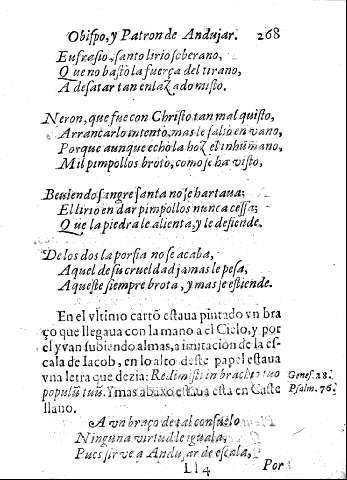 Obispo, y Patron de Andujar. 268
Eufrasio, santo lirio soberano,
Que no bastò la fuerça del tirano,
A desatar tan enlazado misto.
Neron, que fue con Christo tan mal quisto,
Arrancarlo intentò, mas le salio en vano,
Porque aunque echò la hoz el inhumano,
Mil pimpollos brotò, como se ha visto,
Beuiendo sangre santa no se hartaua;
El lirio en dar pimpollos nunca cessa;
Que la piedra le alienta, y le defiende.
De los dos la porfia no se acaba,
Aquel de su crueldad jamas le pesa,
Aqueste siempre brota, y mas se estiende.
En el vltimo cartõ estaua pintado vn bra
ço que llegaua con la mano a el Cielo, y por
el yvan subiendo almas, a imitacion de la es-
cala de Iacob, en lo alto deste papel estaua
vna letra que dezia: Redimisti in brachio tuo Genes. 28.
populũ tuũ. Y mas abaxo estaua esta en Caste Psalm. 76.
llano.
A vn braço de tal consuelo
Ninguna virtud le iguala,
Pues sirve a Andujar de escala,
Ll 4 Por